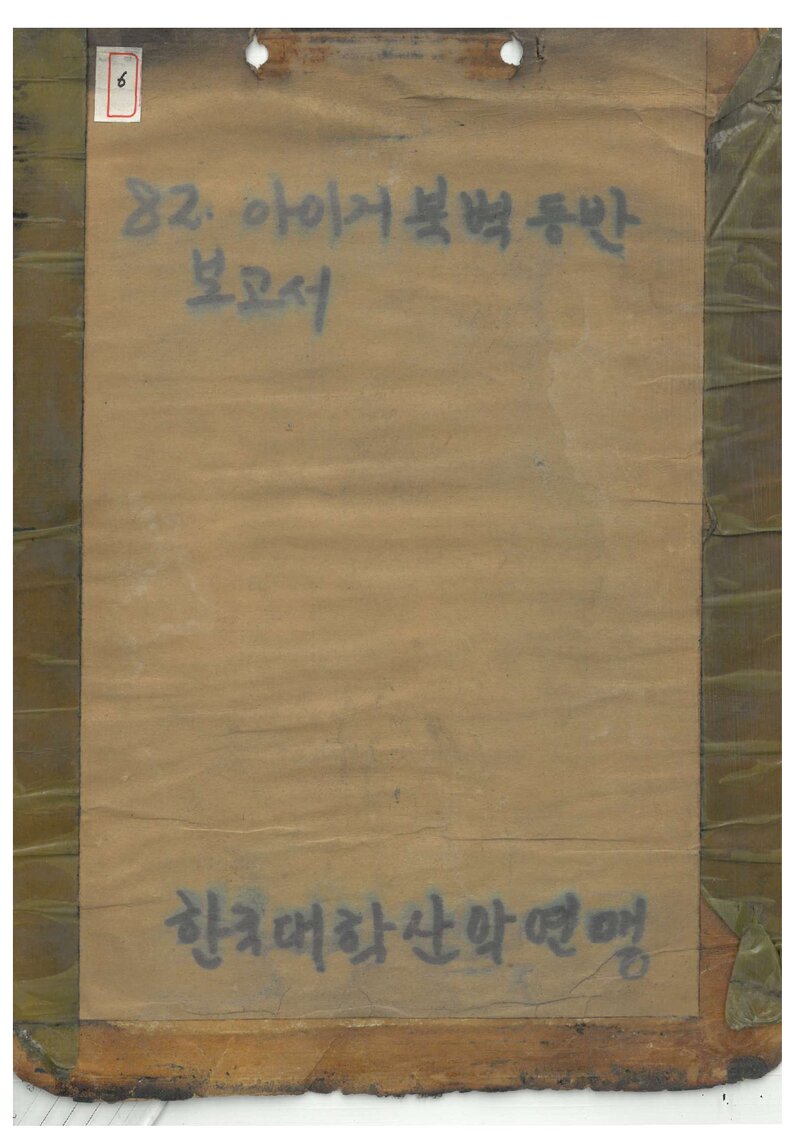 6
82. 아이거 북벽 등반
보고서
한국대학산악연맹